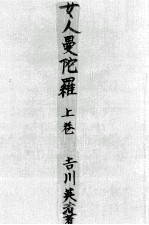 女人曼陀羅 上巻 吉川英治著